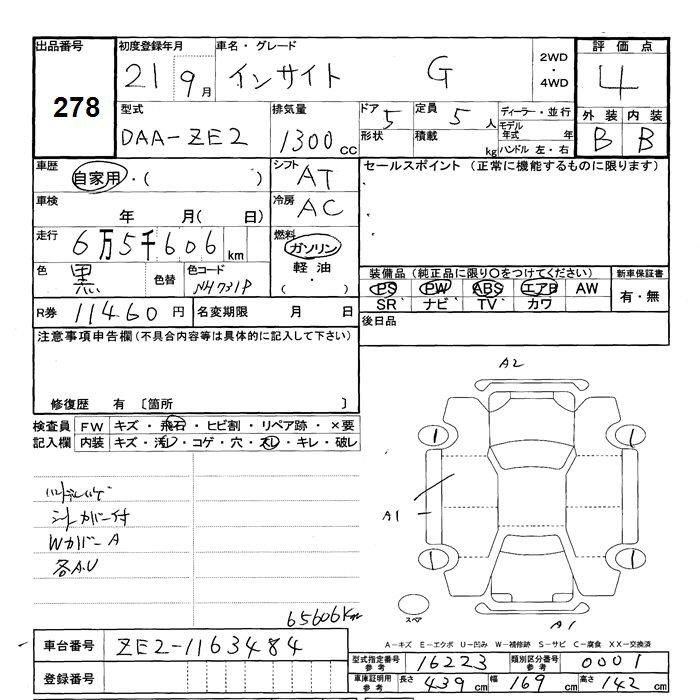 出品番号 278
初度登録年月 21 9月
車名・グレード インサイト G
2WD ・ 4WD
評価点 4
型式 DAA-ZE2
排気量 1300cc
ドア 5 形状
定員 5人 積載 kg
ディーラー・並行
モデル年式 年
ハンドル 左・右
外装 内装
B B
車歴 自家用・( )
シフト AT
セールスポイント (正常に機能するものに限ります)
車検 年 月( 日)
冷房 AC
走行 6万5千606km
燃料 ガソリン
軽油・( )
色 黒 色替 色コード NH731P
装備品 (純正品に限り○をつけてください)
新車保証書
PS PW ABS エアB AW
有・無
SR ナビ TV カワ
R券 11460円
名変期限 月 日
後日品
注意事項申告欄 (不具合内容等は具体的に記入して下さい)
修復歴 有 〔箇所 〕
検査員 FW キズ・飛石・ヒビ割・リペア跡・×要
記入欄 内装 キズ・汚レ・コゲ・穴・スレ・キレ・破レ
A2
1 1
シートカバー付
WカバーA
各A.U
A1
1 1
スペア
65606Km
A1
A-キズ E-エクボ U-凹み W-補修跡 S-サビ C-腐食 XX-交換済
車台番号 ZE2-1163484
型式指定番号 参考 16223
類別区分番号 参考 0001
登録番号
車庫証明用 参考 長さ 439cm 幅 169cm 高さ 142cm